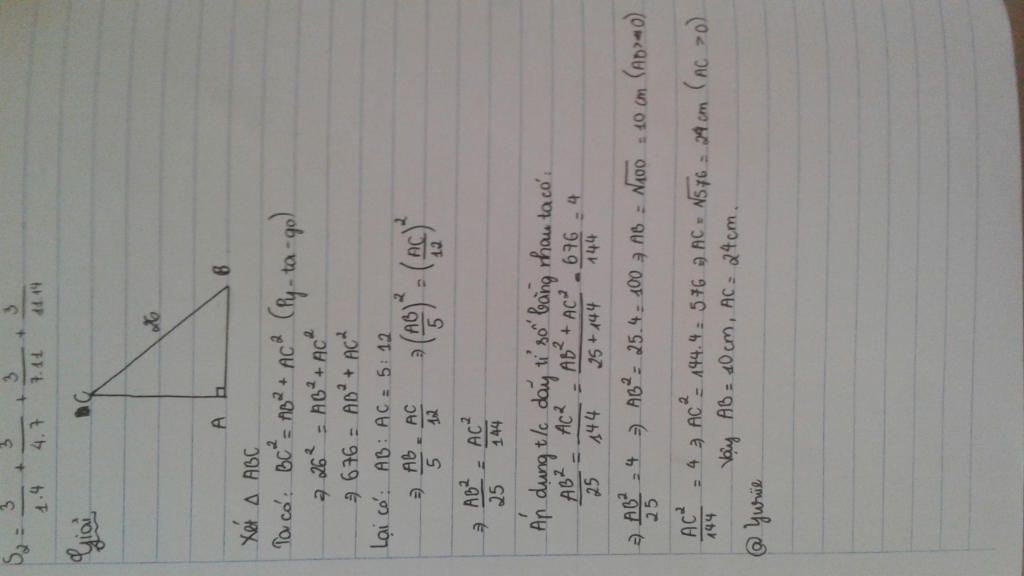 S₂ = 3/1.4 + 3/4.7 + 3/7.11 + 3/11.14
Giải
C
26
A B
Xét Δ ABC
Ta có: BC² = AB² + AC² (Py-ta-go)
⇒ 26² = AB² + AC²
⇒ 676 = AB² + AC²
Lại có: AB : AC = 5 : 12
⇒ AB/5 = AC/12 ⇒ (AB/5)² = (AC/12)²
⇒ AB²/25 = AC²/144
Áp dụng t/c dãy tỉ số bằng nhau ta có:
AB²/25 = AC²/144 = AB² + AC²/25 + 144 = 676/144 = 4
⇒ AB²/25 = 4 ⇒ AB² = 25.4 = 100 ⇒ AB = √100 = 10 cm (AB > 0)
AC²/144 = 4 ⇒ AC² = 144.4 = 576 ⇒ AC = √576 = 24 cm (AC > 0)
Vậy AB = 10 cm, AC = 24 cm.
@ Yunie